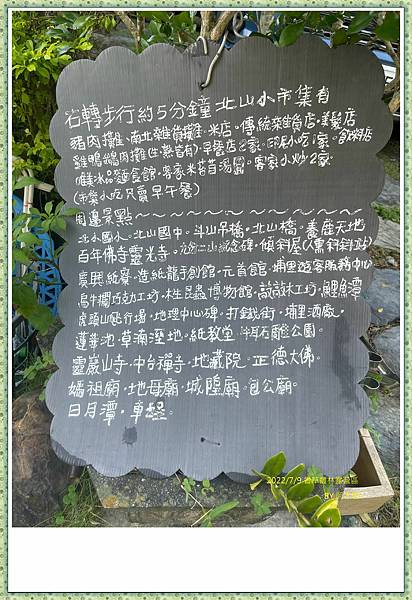 右轉步行約5分鐘北山小市集有
豬肉攤。南北雜貨攤。米店。傳統雜貨店。美髮店
雞鴨鵝肉攤(生熟皆有)早餐店2家。小吃3家。飲料店
冰品麵食館。客家米苔湯圓。客家小炒2家。
(市集小吃只賣早午餐)
周邊景點~
北山國小。北山國中。斗山吊橋。北山橋。養產天地
百年佛寺靈光寺。九份二山紀念碑。傾斜屋(震斜斜站)
廣興紙寮。造紙龍手創館。元首館。埔里遊客服務中心
牛耳石雕公園。木生昆蟲博物館。敲敲木工坊。鯉魚潭
虎頭山飛行場。地理中心碑。打鐵街。埔里酒廠。
蓮華池。草湳溼地。紙教堂
靈巖山寺。中台禪寺。地藏院。正德大佛。
媽祖廟。地母廟。城隍廟。包公廟。
日月潭。車埕。
2022/7/9
BY